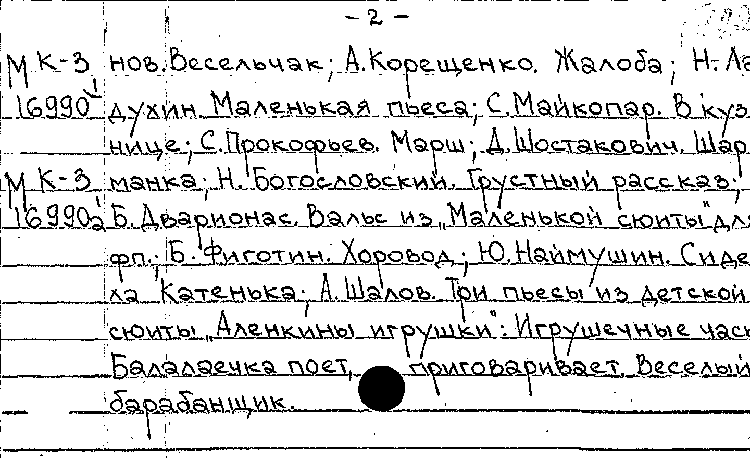 - 2 -
М К-3 нов. Весельчак; А. Корещенко. Жалоба; Н. Ла
16990 1 духин. Маленькая пьеса; С. Майкопар. В куз
нице; С. Прокофьев. Марш; Д. Шостакович. Шар
М К-3 манка; Н. Богословский. Грустный рассказ;
16990 2 Б. Дварионас. Вальс из „Маленькой сюиты" для
фп.; Б. Фиготин. Хоровод; Ю. Наймушин. Сиде
ла Катенька; А. Шалов. Три пьесы из детской
сюиты „Аленкины игрушки": Игрушечные час
Балалаечка поет, приговаривает. Веселый
барабанщик.